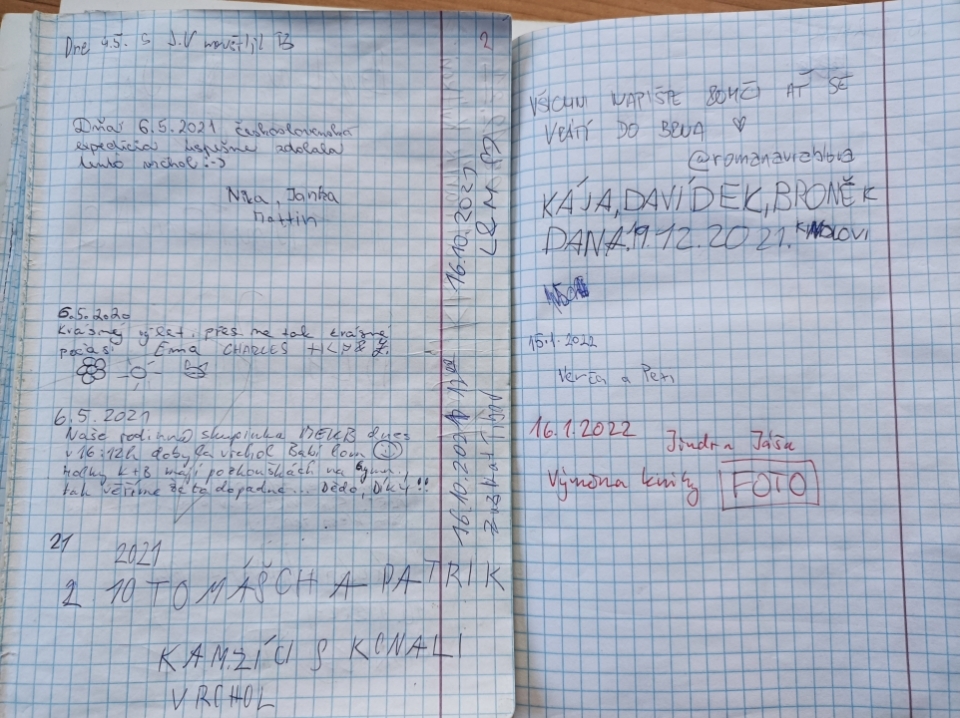 Dne 4.5. S J.V
2
Dňa 6.5.2021 československá
expedícia úspešne zdolala
tento vrchol :-)
Nika, Janka
Martin
6.5.2020
Krásný výlet, přes ne tak krásné
počasí Ema CHARLES
6.5.2021
Naše rodinná skupinka BEKB dnes
v 16:12h dobyla vrchol Babí lom
Holky K+B mají po zkouškách na gymn.,
tak věříme že to dopadne... Dědo, Díky!!
21
2021
2 10 TOMÁŠCH A PATRIK
KAMZÍCI S KONALI
VRCHOL
16.10.2021
16.10.2021
L&M
VŠICHNI NAPIŠTE ROMČI AŤ SE
VRÁTÍ DO BRNA ♡
@romanavrablova
KÁJA, DAVÍDEK, BRONĚK
DANA. 19.12.2021.
15.1.2022
Verča a Petr
16.1.2022 Jindra Jáša
Výměna knihy FOTO